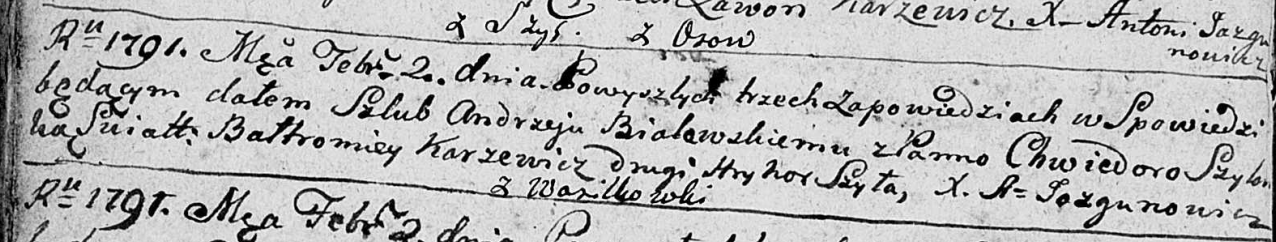 Zawon Karzewicz. X– Antoni Jazgu
z Szył. z Osow nowicz
R̲u̲ 1791. M-ca Febr. 2. dnia. Powyszłych trzech Zapowiedziach w Spowiedzi
będącym dałem Szlub Andrzeju Bialewskiemu z Panno Chwiedoro Szyłon
ką Swiatt: Bałtromiey Karzewicz drugi Hryhor Szyła, X. A= Jazgunowicz
z Wasilkowki
R̲u̲ 1791. M-ca Febr. 2. dnia